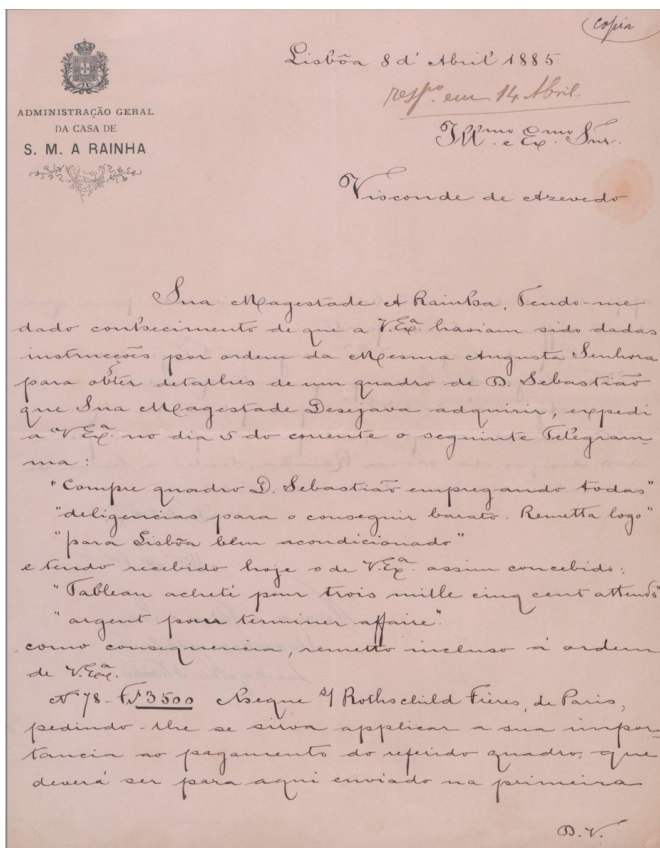 Copia
Lisbôa 8 d' Abril 1885
resp.º em 14 Abril
ADMINISTRAÇÃO GERAL
DA CASA DE
S. M. A RAINHA
Ill.mo e Ex.mo Snr.
Visconde de Azevedo
Sua Magestade A Rainha, Tendo-me
dado conhecimento de que a V.Exª haviam sido dadas
instrucções por ordem da Mesma Augusta Senhora
para obter detalhes de um quadro de D. Sebastião
que Sua Magestade Desejava adquirir, expedi
a V.Exª no dia 5 do corrente o seguinte Telegram-
ma:
"Compre quadro D. Sebastião empregando todas"
"deligencias para o conseguir barato. Remetta logo"
"para Lisbôa bem acondicionado"
e tendo recebido hoje o de V.Exª assim concebido:
"Tableau acheté pour trois mille cinq cent attends"
"argent pour terminer affaire".
como consequencia, remetto incluso á ordem
de V.Exª
Nº 78 - Fs 3500 Xeque s/ Rothschild Frères, de Paris,
pedindo-lhe se sirva applicar a sua impor-
tancia ao pagamento do referido quadro, que
deverá ser para aqui enviado na primeira